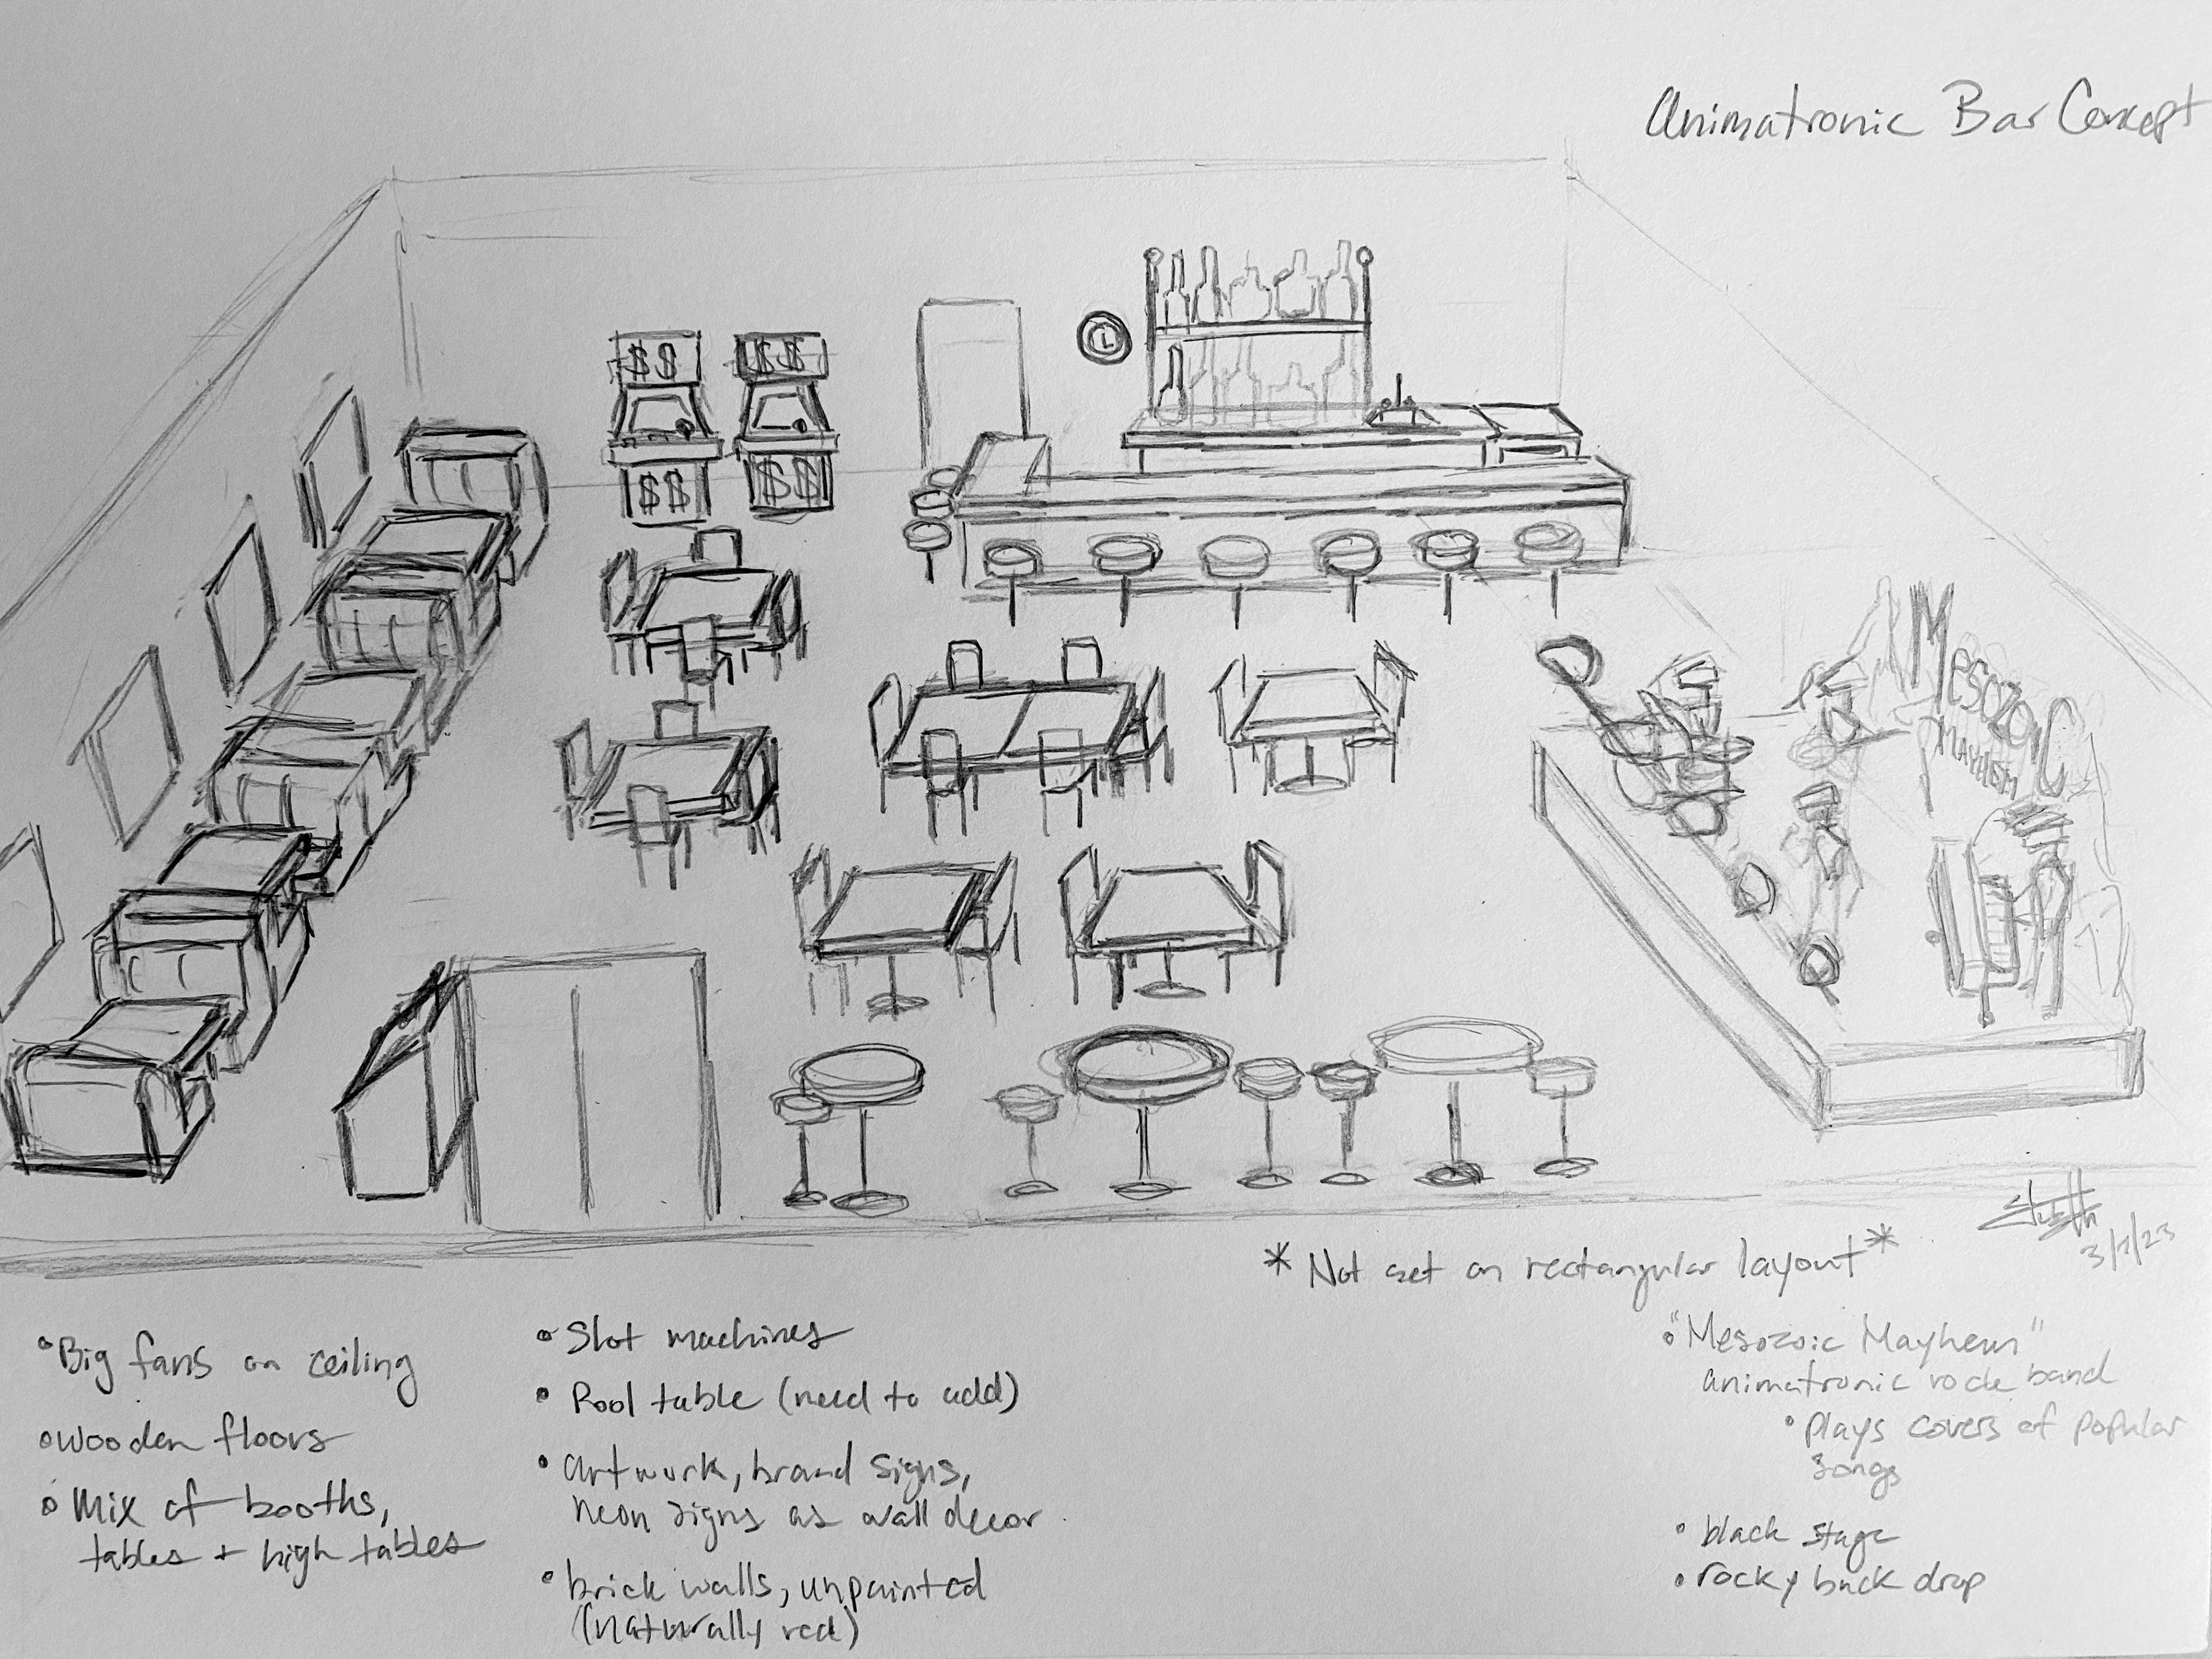 Animatronic Bar Concept
$$ $$
$$ $$
Mesozoic
Mayhem
3/1/23
* Not set on rectangular layout *
• Big fans on ceiling
• wooden floors
• Mix of booths,
tables + high tables
• Slot machines
• Pool table (need to add)
• artwork, brand signs,
neon signs as wall decor
• brick walls, unpainted
(naturally red)
• "Mesozoic Mayhem"
animatronic rock band
• plays covers of popular
songs
• black stage
• rocky back drop